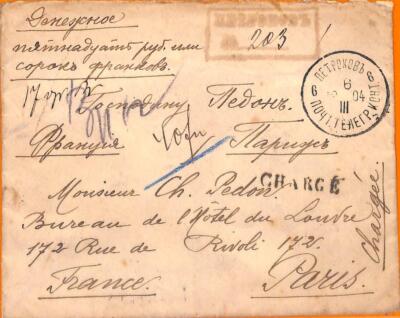 Денежное
пятнадцать руб. или
сорокъ франковъ.
203
ПЕТРОКОВЪ
6 6 6
III 04
ПОЧТ.ТЕЛЕГР.КОНТ
Господину Педонъ.
Франція Парижъ
CHARGÉ
Monsieur Ch. Pedon.
Bureau de l'Hôtel du Louvre
172 Rue de Rivoli 172.
France. Paris.
Chargée.